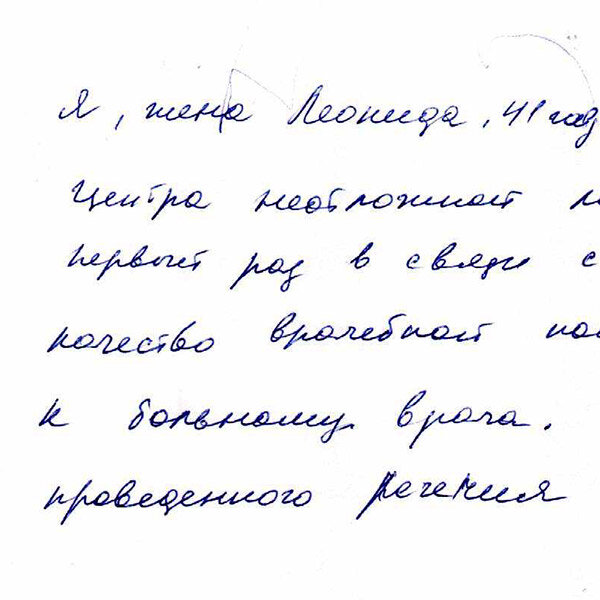 Я, жена Леонида, 41 год
Центра неотложной
первый раз в связи с
качество врачебной
к больному врача.
проведенного лечения